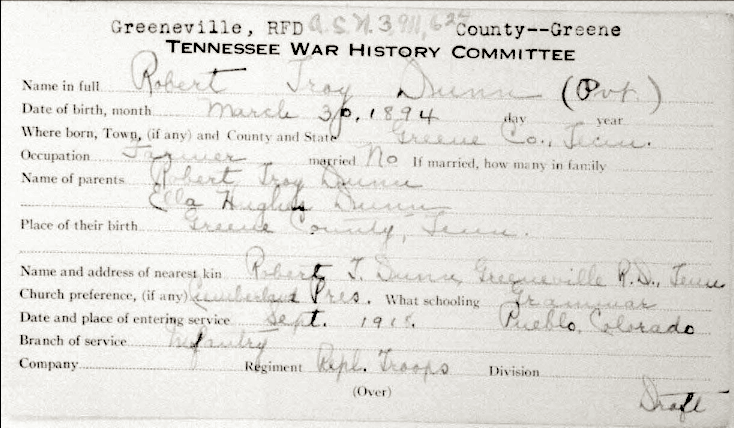 Greeneville, RFD A.S.N. 3,911,624 County--Greene
TENNESSEE WAR HISTORY COMMITTEE
Name in full Robert Troy Dunn (Pvt.)
Date of birth, month March 30, 1894 day year
Where born, Town, (if any) and County and State Greene Co., Tenn.
Occupation Farmer married No If married, how many in family
Name of parents Robert Troy Dunn
Ella Hughes Dunn
Place of their birth Greene County, Tenn.
Name and address of nearest kin Robert T. Dunn, Greeneville R.D., Tenn.
Church preference, (if any) Cumberland Pres. What schooling Grammar
Date and place of entering service Sept. 1918. Pueblo, Colorado
Branch of service Infantry
Company Regiment Repl. Troops Division
(Over)
Draft